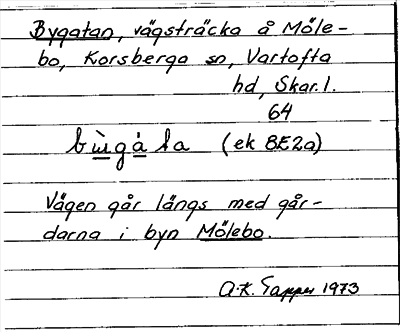 Bygatan, vägsträcka å Möle-
bo, Korsberga sn, Vartofta
hd, Skar. l.
64
bùgàta (ek 8E2a)
Vägen går längs med går-
darna i byn Mölebo.
A-K. Tapper 1973